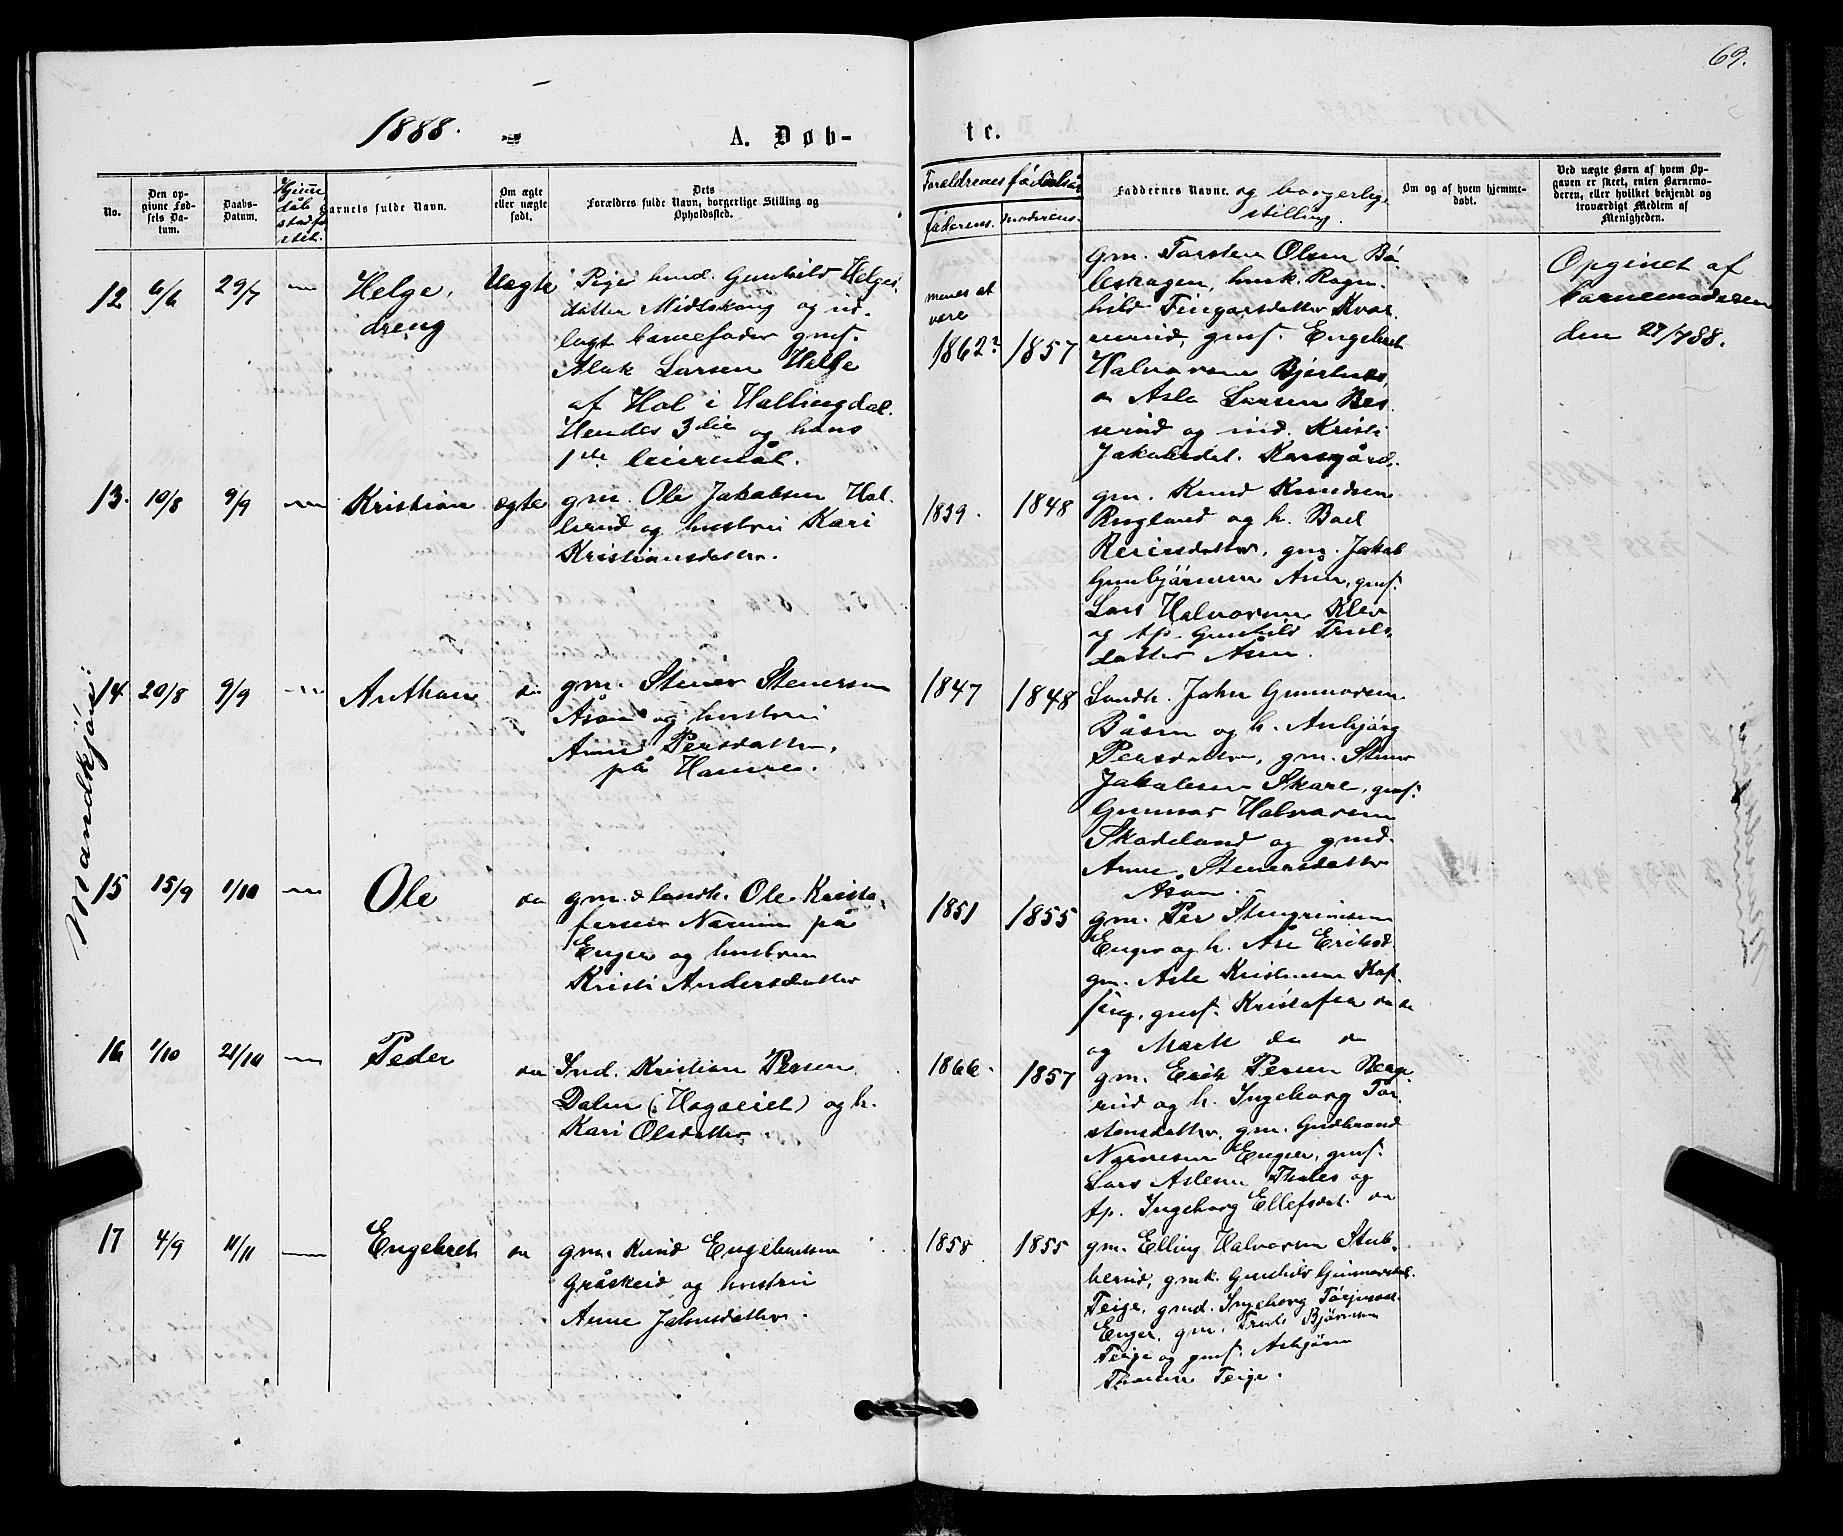 69.
1888.
A. Døb-
te.
No.
Den op-
givne Fød-
sels Da-
tum.
Daabs-
Datum.
Barnets fulde Navn.
Om ægte
eller uægte
født.
Dets
Forældres fulde Navn, borgerlige Stilling og
Opholdssted.
Forældrenes fødselsår
faderens. moderens.
Faddernes Navne. og borgerlige
stilling.
Om og af hvem hjemme-
døbt.
Ved uægte Børn af hvem Op-
gaven er skeet, enten Barnemo-
deren, eller hvilket bekjendt og
troværdigt Medlem af
Menigheden.
Mandkjøn:
12 6/6 29/7
Helge,
dreng
Uægte
Pige Gunhild Helges-
datter Midtskoug og ud-
lagt barnefader gmf.
Aslak Larsen Helle
af Hol i Hallingdal.
Hendes 3die og hans
1ste leiermål.
menes at
være
1862? 1857
gm. Torsten Olsen Bö-
leskagen, husk. Ragn-
hild
gmf. Engebret
Halvorsen
Asle Larsen Bes-
serud og ind. Kristi
Jakobsdat.
Opgivet af
barnemoderen
den 27/7 88.
13. 10/8 9/9 Kristian ægte
gm. Ole Jakobsen Hal-
lerud og hustru Kari
Kristiansdatter.
1839. 1848
gm. Knud Knudsen
Rugland og h.
gm. Jakob
Gunbjörnsen Åsen, gmf.
Lars Halvorsen Klev
og tp. Gunhild Truls-
datter Åsen.
14 20/8 9/9 Anthon do
gm. Stener Stenersen
Åsen og hustru
Anne Persdatter,
på Hamre.
1847 1848
Landh. John Gunnarsen
Båsen og h. Anbjørg
Persdatter, gm. Stener
Jakobsen Skare, gmf.
Gunnar Halvorsen
Skadeland og gmd.
Anne Stenersdatter
Åsen.
15 15/9 1/10 Ole do
gm. & landh. Ole Kristo-
fersen på
Enger og hustru
Kristi Andersdatter
1851 1855
gm. Per Stengrimsen
Enger og h. Åse Eriksd.
gm. Asle Kristensen
gmf. Kristofer do do
og Marte do do
16 1/10 21/10 Peder do
Ind. Kristian Persen
Dalen (Hagaeiet) og h.
Kari Olsdatter.
1866. 1857
gm. Erik Persen Berge-
rud og h. Ingeborg Tor-
stensdatter, gm. Gudbrand
Narvesen Enger, gmf.
Lars Aslesen Tholes og
tp. Ingeborg Ellefsdat. do
17 4/9 11/11 Engebret do
gm. Knud Engebretsen
Gråskeid og hustru
Anne Jakobsdatter.
1858 1855
gm. Elling Halvorsen Stub-
berud, gmk. Gunhild Gunnarsdat.
Teige, gmd. Ingeborg
Enger, gm. Truls Björnsen
Teige og gmf. Asbjörn
Thorsen Teige.